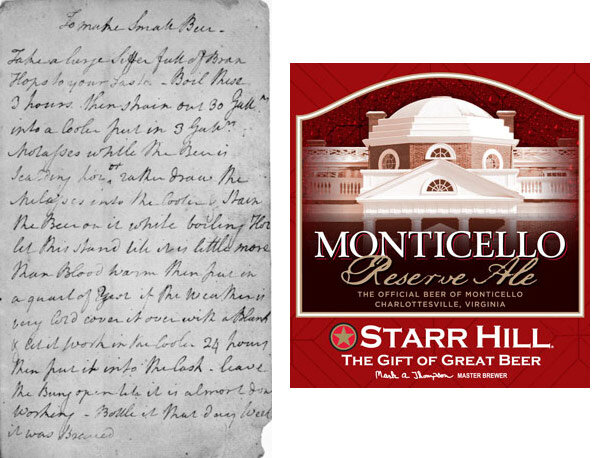 To make Small Beer.
Take a large Siffer full of Bran
Hops to your Taste - Boil these
3 hours. then strain out 30 Gall.ns
into a Cooler put in 3 Gall.ns
Molasses while the Beer is
Scalding hot or rather draw the
Molasses into the Cooler & Strain
the Beer on it while boiling Hot
let this stand till it is little more
than Blood warm then put in
a quart of Yest if the Weather is
very Cold cover it over with a Blank
& let it work in the Cooler 24 hours
then put it into the Cask - leave
the Bung open till it is almost don
working - Bottle it that day Week
it was Brewed
MONTICELLO
Reserve Ale
THE OFFICIAL BEER OF MONTICELLO
CHARLOTTESVILLE, VIRGINIA
STARR HILL
THE GIFT OF GREAT BEER
Mark A Thompson MASTER BREWER